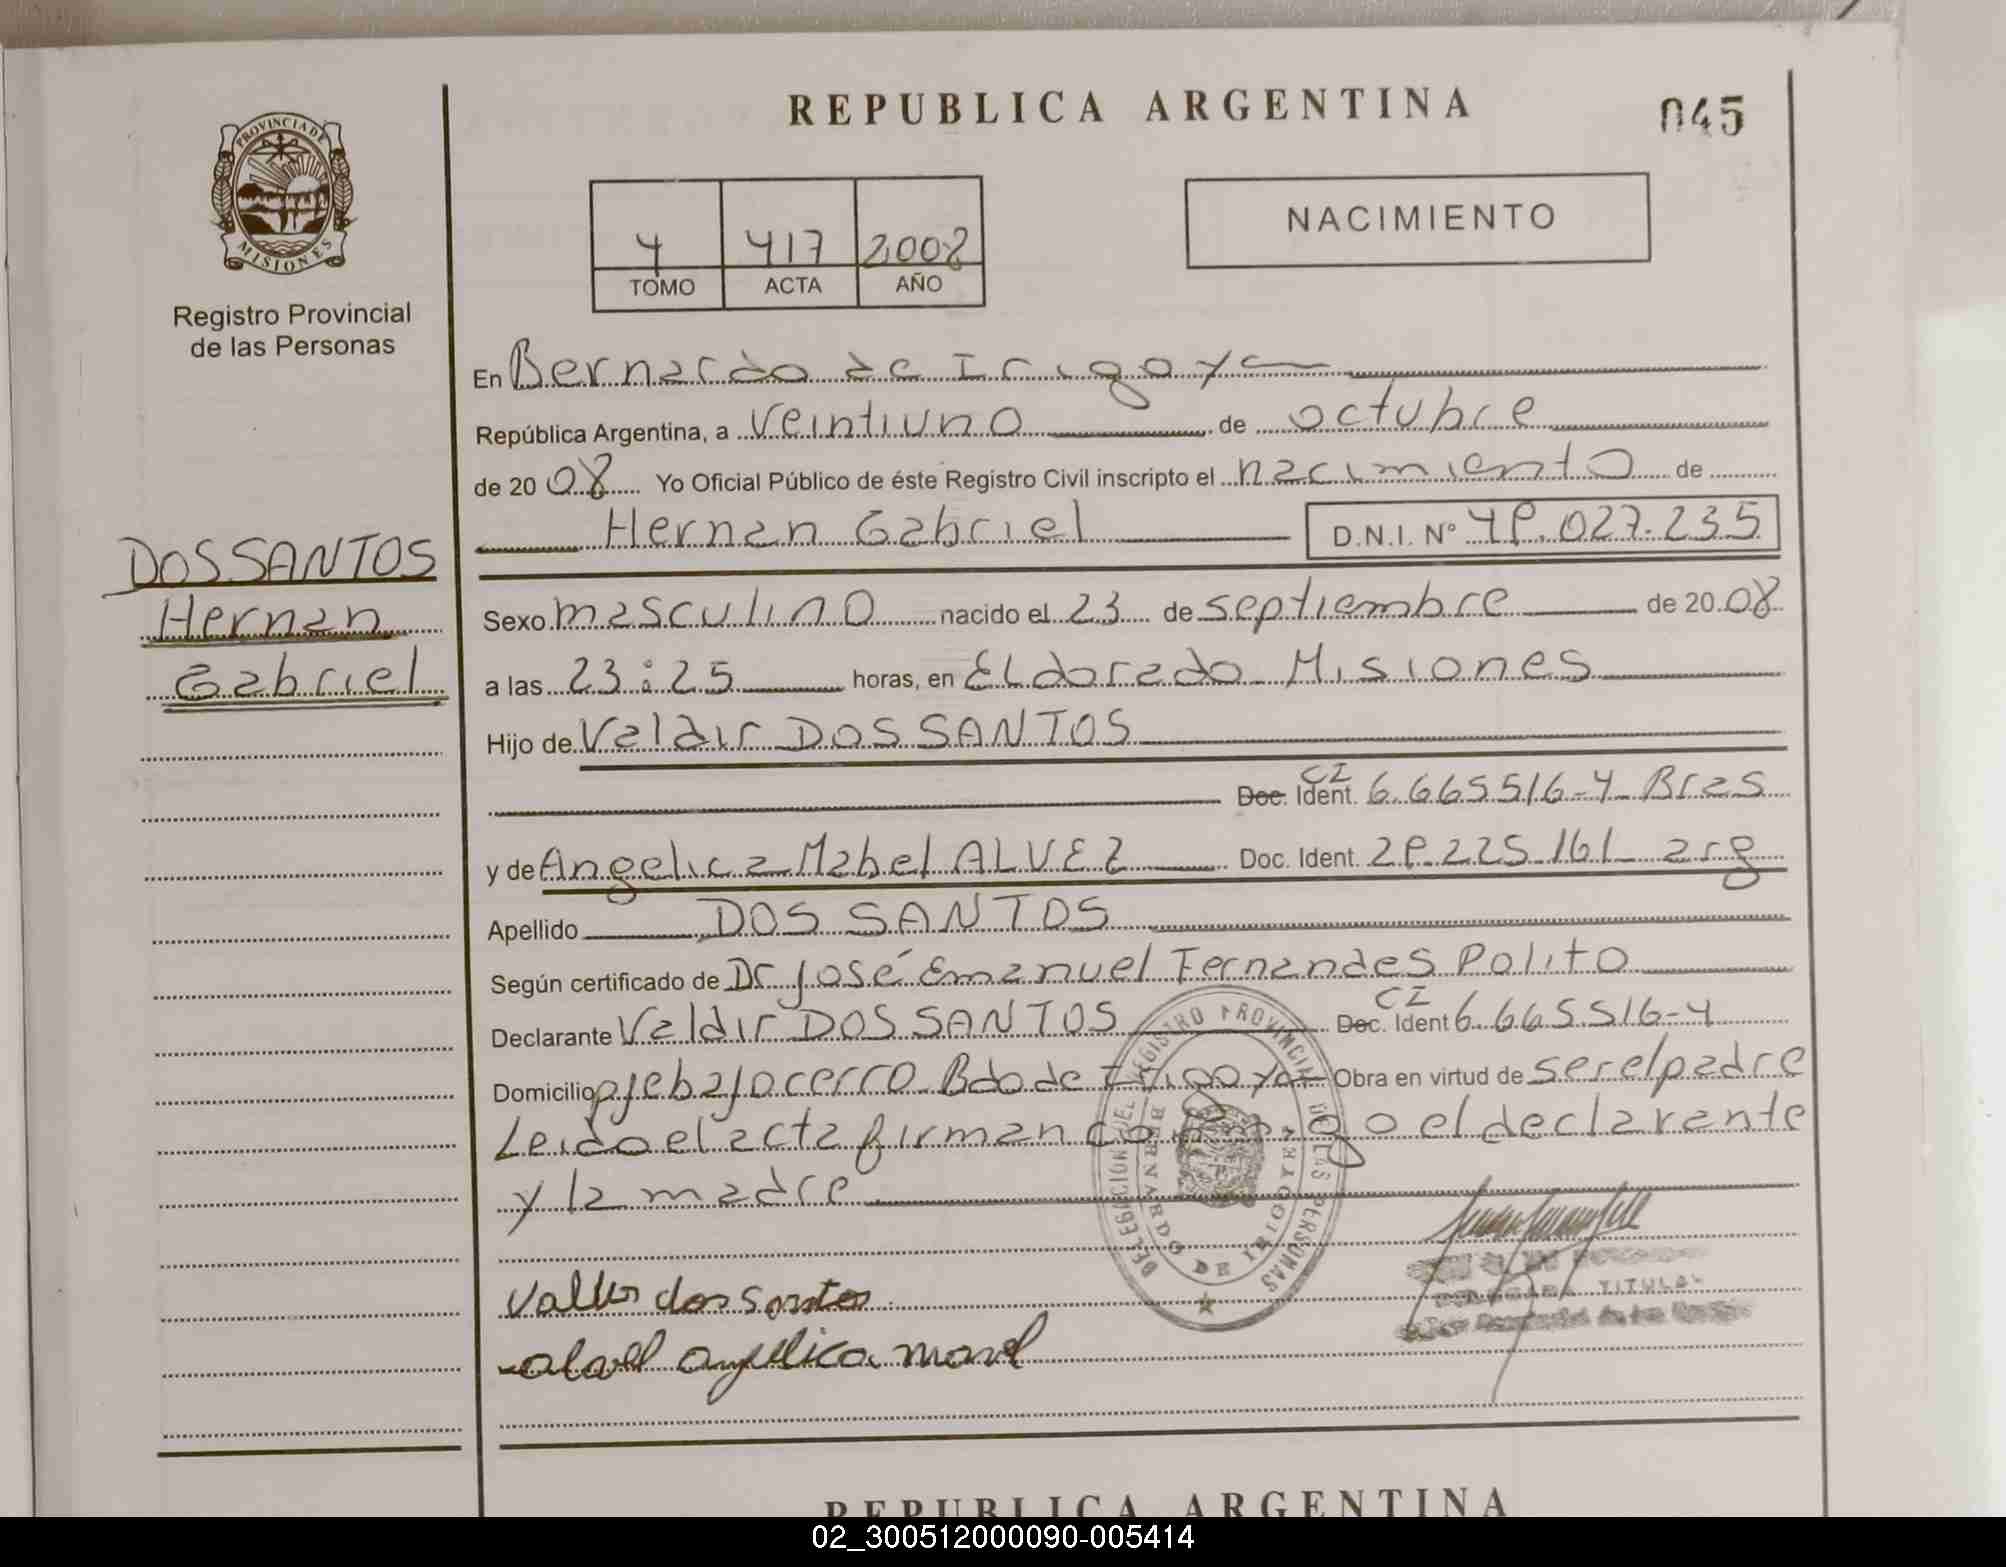 REPUBLICA ARGENTINA
045
PROVINCIA DE
MISIONES
Registro Provincial
de las Personas
4 417 2.008
TOMO ACTA AÑO
NACIMIENTO
En Bernardo de Irigoyen
República Argentina, a veintiuno de octubre
de 2008 Yo Oficial Público de éste Registro Civil inscripto el nacimiento de
Hernan Gabriel D.N.I. Nº 49.027.235
DOS SANTOS
Hernan
Gabriel
Sexo masculino nacido el 23 de septiembre de 2008
a las 23:25 horas, en Eldorado Misiones
Hijo de Valdir DOS SANTOS
CI
Doc. Ident. 6.665516-4 Bras
y de Angelica Mabel ALVEZ Doc. Ident. 29.225.161 arg
Apellido DOS SANTOS
Según certificado de Dr José Emanuel Fernandes Polito
CI
Declarante Valdir DOS SANTOS Doc. Ident 6.665516-4
Domicilio pje bajo cerro Bdo de Irigoyen Obra en virtud de ser el padre
Leido el acta firman conmigo el declarante
y la madre
DELEGACION DEL REGISTRO PROVINCIAL DE LAS PERSONAS
BERNARDO DE IRIGOYEN
TITULAR
dos santos
angelica
REPUBLICA ARGENTINA
02_300512000090-005414